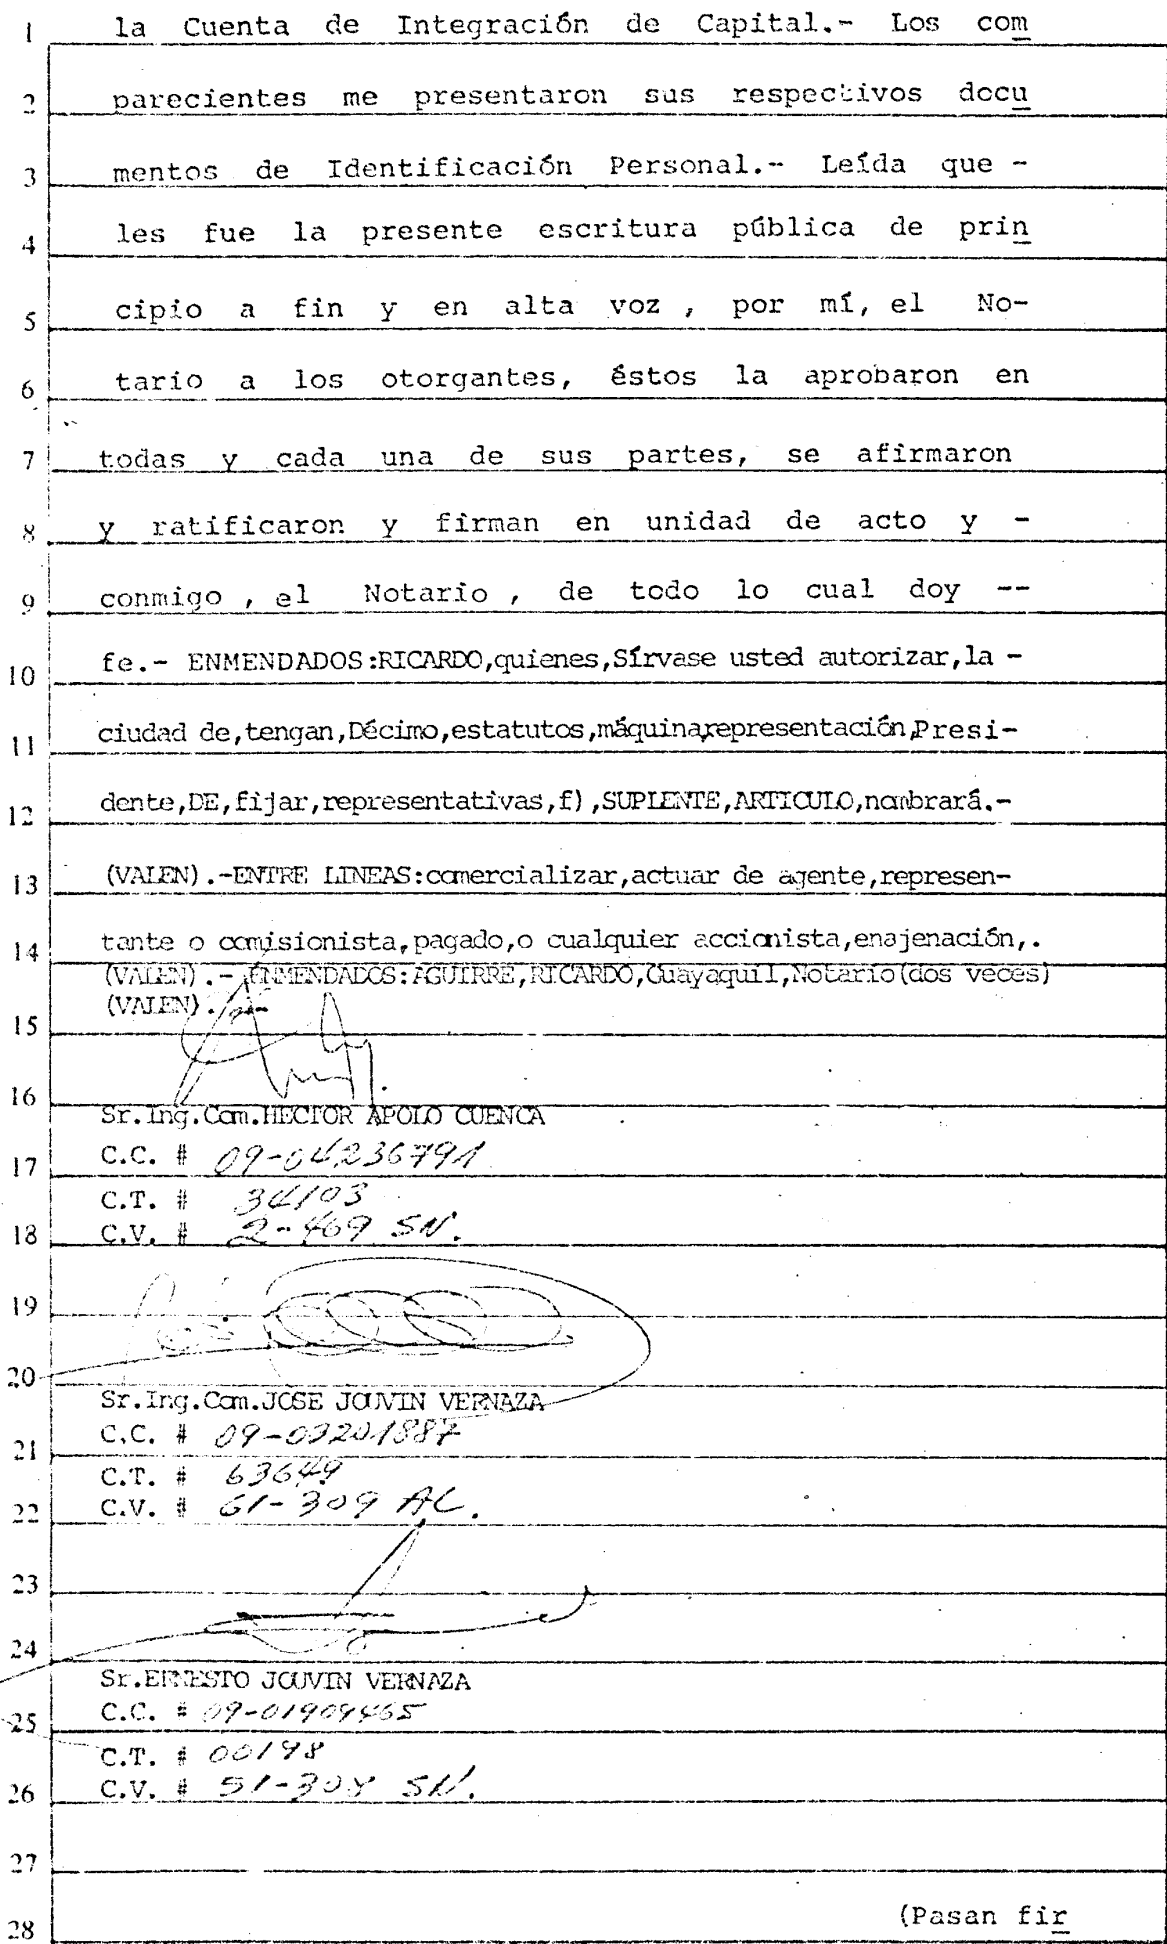 1 la Cuenta de Integración de Capital.- Los com
2 parecientes me presentaron sus respectivos docu
3 mentos de Identificación Personal.- Leída que -
4 les fue la presente escritura pública de prin
5 cipio a fin y en alta voz , por mí, el No-
6 tario a los otorgantes, éstos la aprobaron en
7 todas y cada una de sus partes, se afirmaron
8 y ratificaron y firman en unidad de acto y -
9 conmigo , el Notario , de todo lo cual doy --
10 fe.- ENMENDADOS:RICARDO,quienes,Sírvase usted autorizar,la -
11 ciudad de,tengan,Décimo,estatutos,máquina,representación,Presi-
12 dente,DE,fijar,representativas,f),SUPLENTE,ARTICULO,nombrará.-
13 (VALEN).-ENTRE LINEAS:comercializar,actuar de agente,represen-
14 tante o comisionista,pagado,o cualquier accionista,enajenación,.
(VALEN).- ENMENDADOS:AGUIRRE,RICARDO,Guayaquil,Notario(dos veces)
15 (VALEN).-
16 Sr.Ing.Com.HECTOR APOLO CUENCA
17 C.C. # 09-04236791
C.T. # 34103
18 C.V. # 2-469 SN.
19
20 Sr.Ing.Com.JOSE JOUVIN VERNAZA
21 C.C. # 09-03201887
C.T. # 63649
22 C.V. # 61-309 AC.
23
24 Sr.ERNESTO JOUVIN VERNAZA
25 C.C. # 09-01909465
C.T. # 00198
26 C.V. # 51-308 SN.
27
28 (Pasan fir